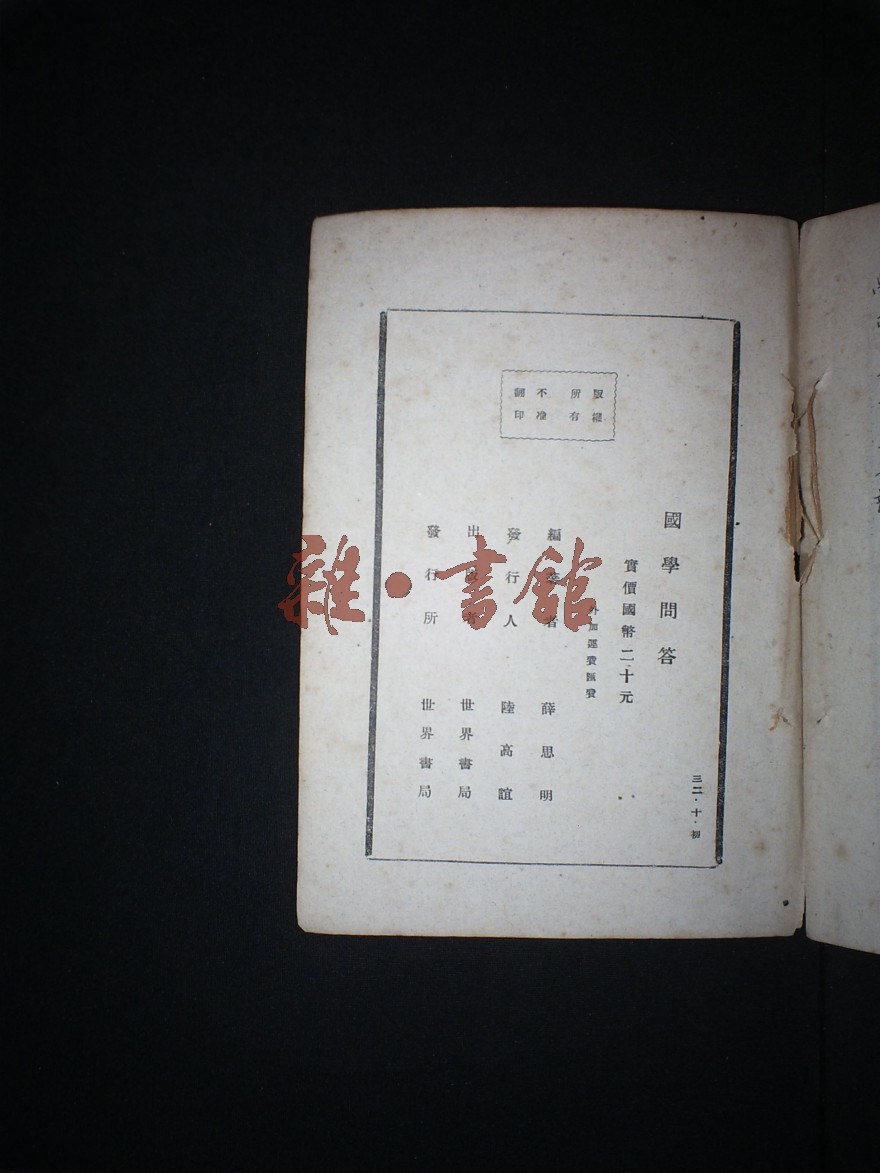 三二·十·初
國學問答
實價國幣二十元
外加運費匯費
編 者 薛思明
發行人 陸高誼
出版者 世界書局
發行所 世界書局
版權
所有
不准
翻印
雜·書館